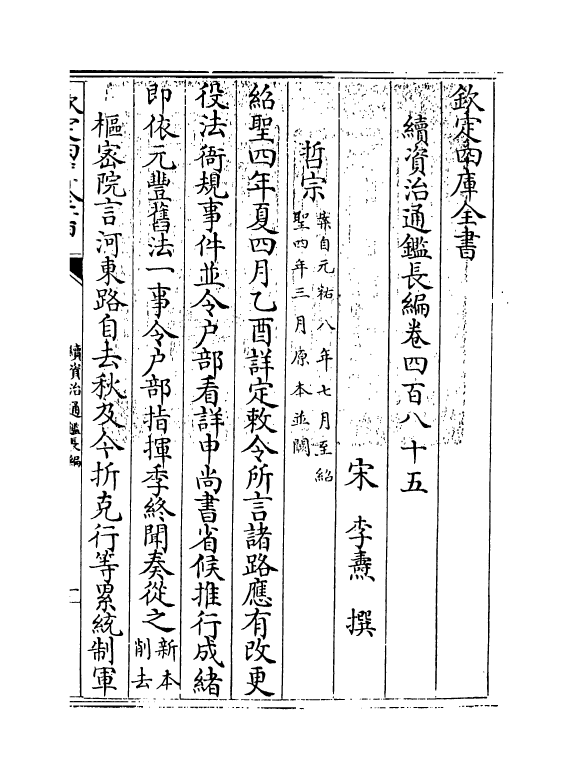 欽定四庫全書
續資治通鑑長編卷四百八十五
宋 李燾 撰
哲宗案自元祐八年七月至紹
聖四年三月原本並闕
紹聖四年夏四月乙酉詳定敕令所言諸路應有改更
役法衙規事件並令户部看詳申尚書省候推行成緒
即依元豐舊法一事令户部指揮季終聞奏從之新本
削去
樞密院言河東路自去秋及今折克行等累統制軍
續資治通鑑長編
一